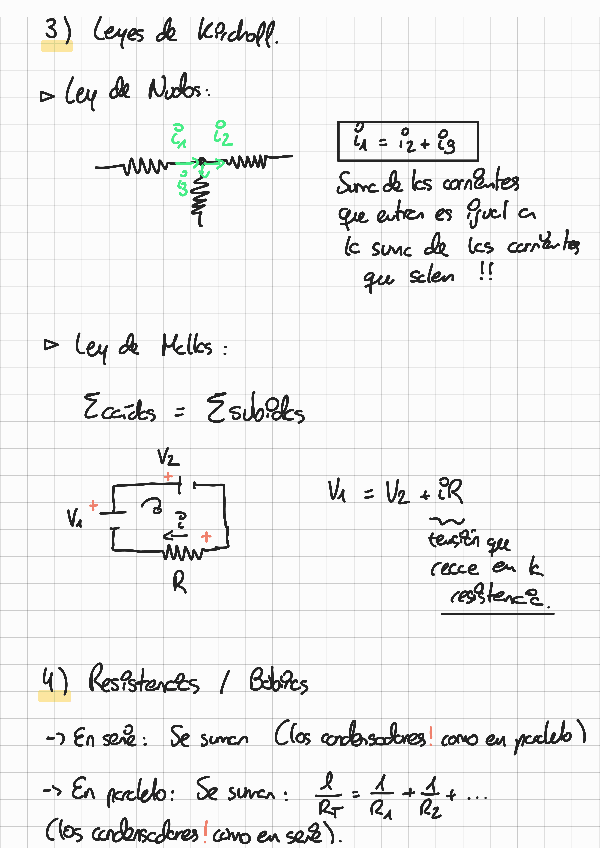 3) Leyes de Kirchoff.
▷ Ley de Nudos:
i1 i2
i3
i1 = i2 + i3
Suma de las corrientes
que entran es igual a
la suma de las corrientes
que salen !!
▷ Ley de Mallas:
Σcaídas = Σsubidas
V2
+
V1 +
i
+
R
V1 = V2 + iR
tensión que
recae en la
resistencia.
4) Resistencias / Bobinas
-> En serie: Se suman (los condensadores! como en paralelo)
-> En paralelo: Se suman: 1/RT = 1/R1 + 1/R2 + ...
(los condensadores! como en serie).